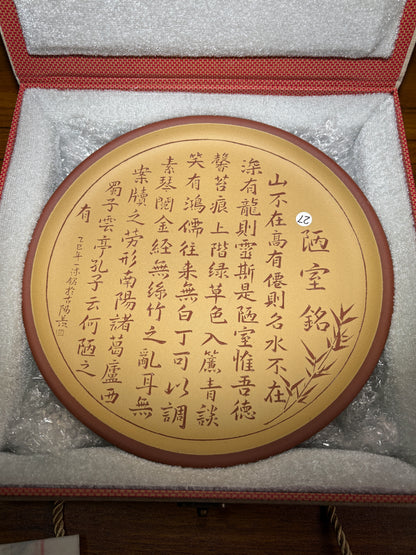 陋室銘
27
山不在高有僊則名水不在
深有龍則靈斯是陋室惟吾德
馨苔痕上階緑草色入簾青談
笑有鴻儒往來無白丁可以調
素琴閱金經無絲竹之亂耳無
案牘之勞形南陽諸葛廬西
蜀子雲亭孔子云何陋之
有
乙巳年 於古陽羨